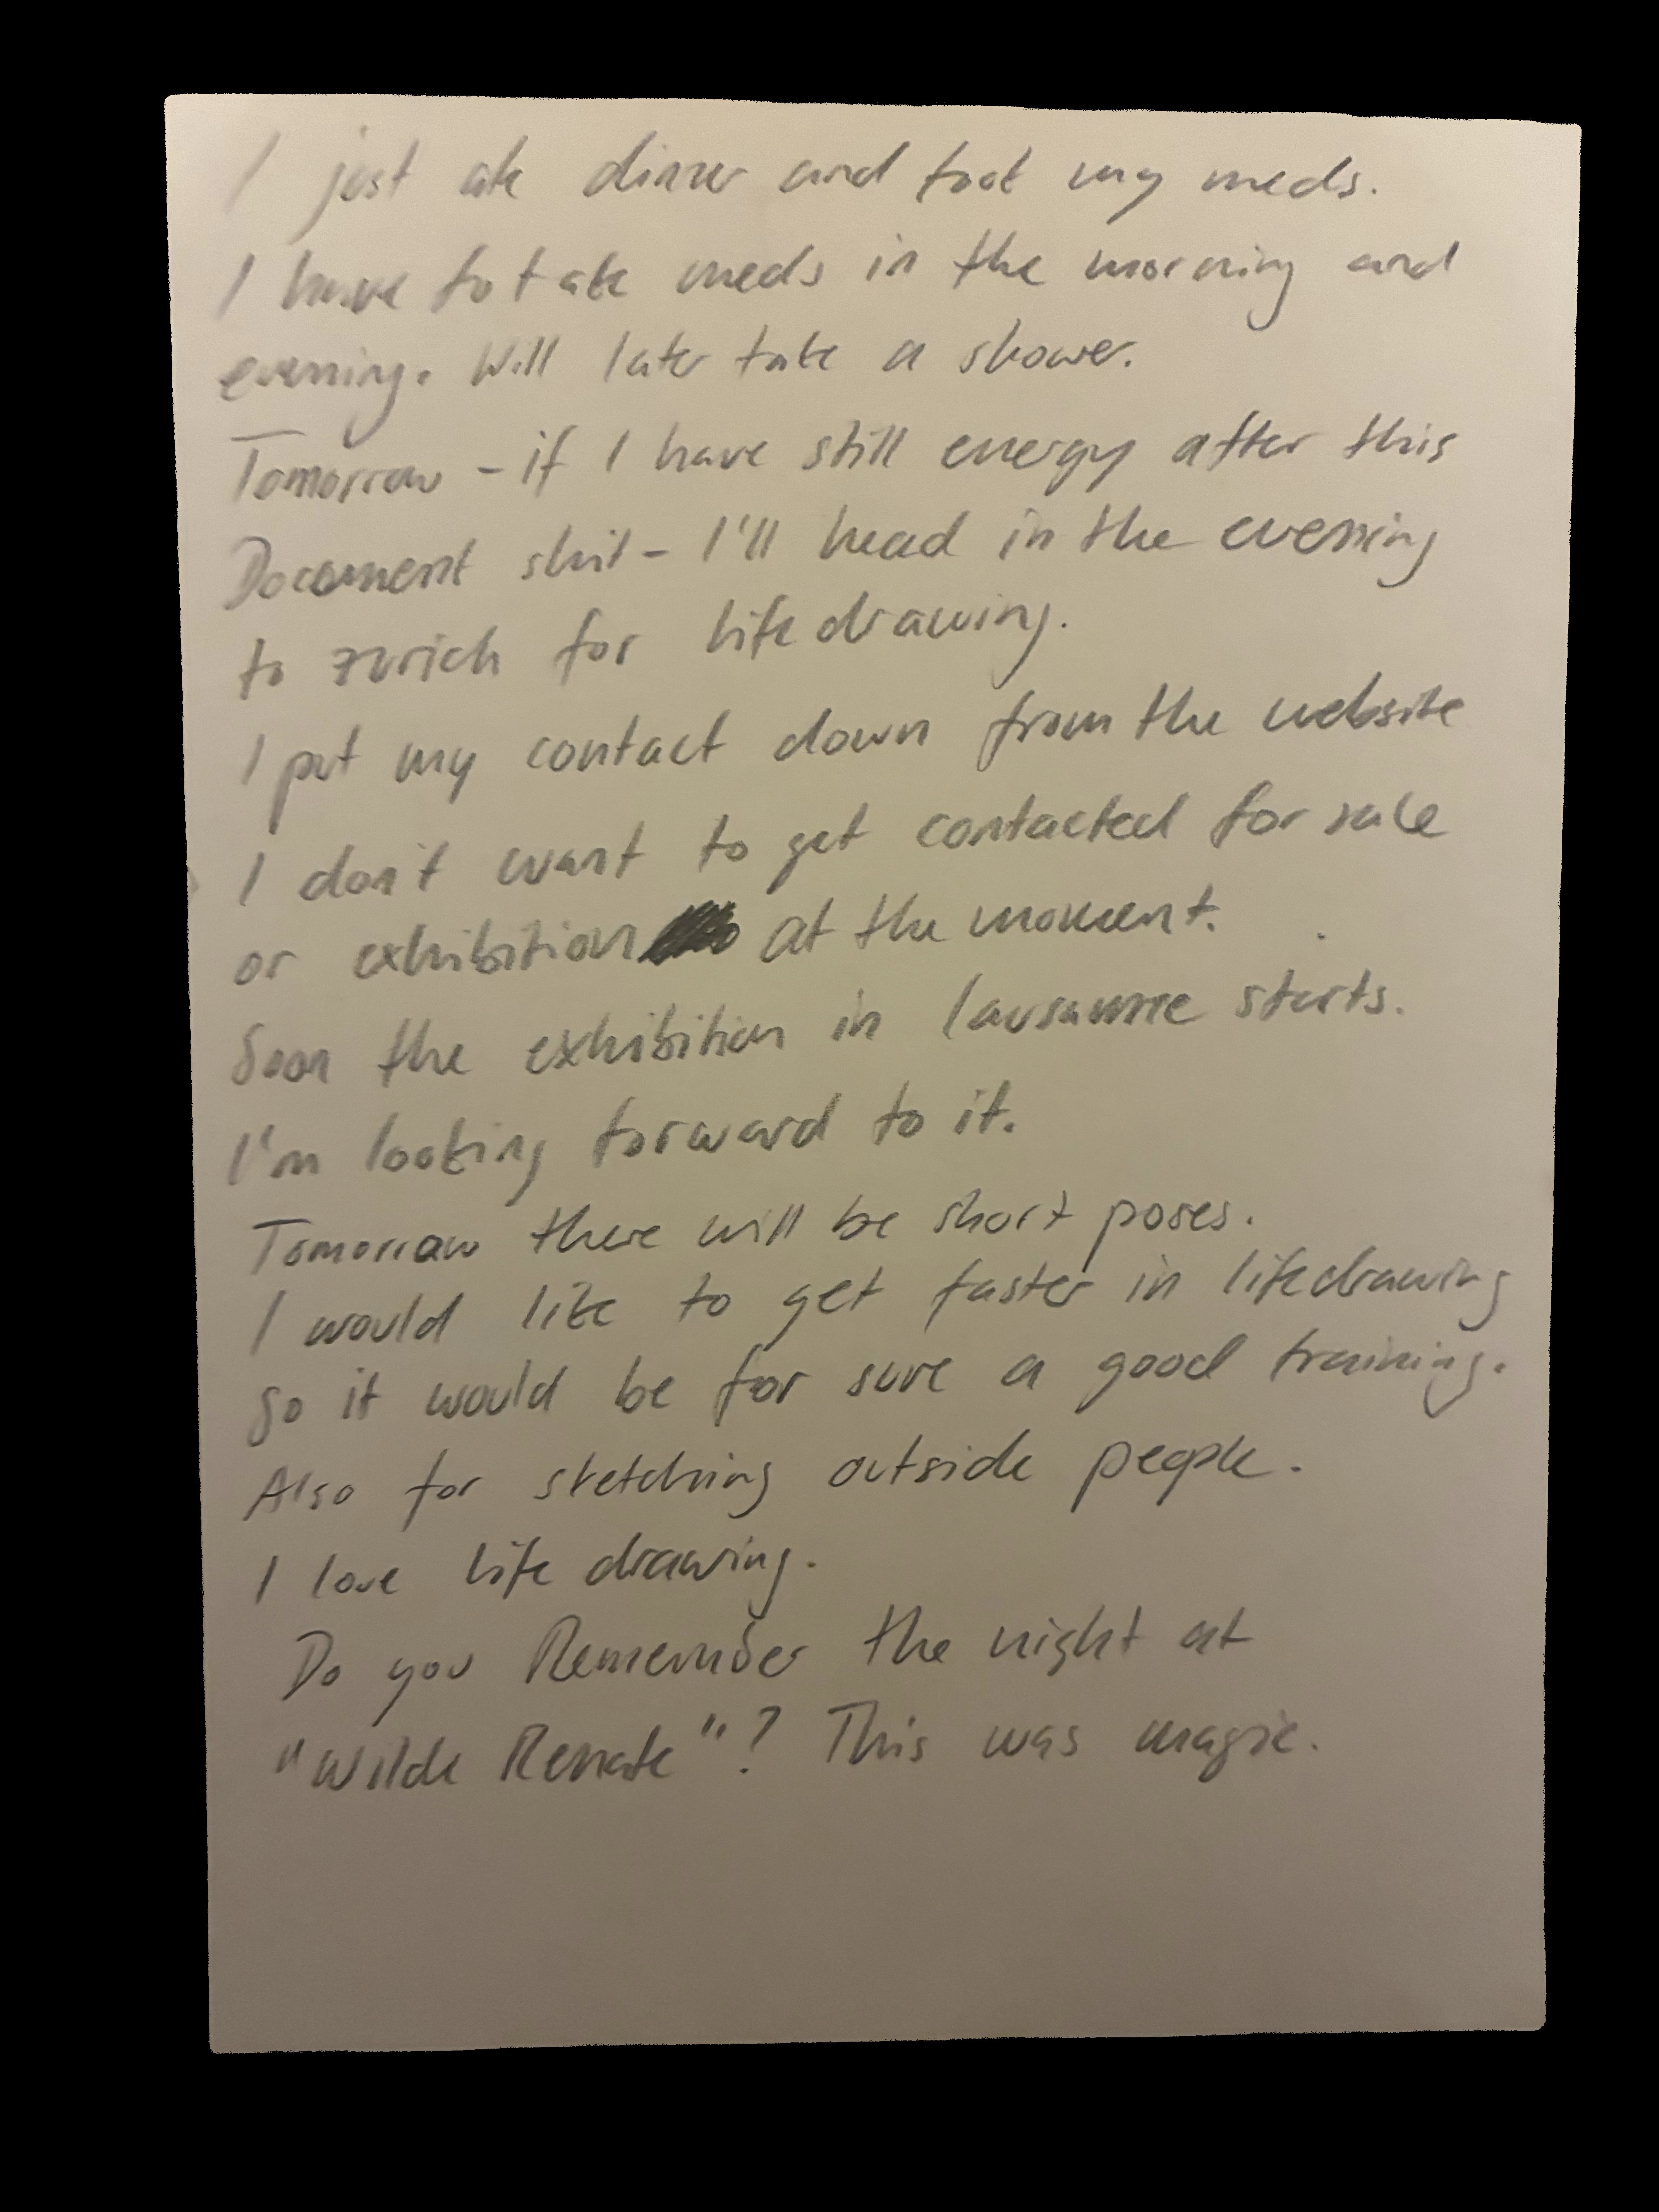 I just ate dinner and took my meds.
I have to take meds in the morning and
evening. Will later take a shower.
Tomorrow – if I have still energy after this
Document shit – I'll head in the evening
to zurich for life drawing.
I put my contact down from the website
I don't want to get contacted for sale
or exhibition at the moment.
Soon the exhibition in lausanne starts.
I'm looking forward to it.
Tomorrow there will be short poses.
I would like to get faster in lifedrawing
so it would be for sure a good training.
Also for sketching outside people.
I love life drawing.
Do you Remember the night at
"Wilde Renate"? This was magic.